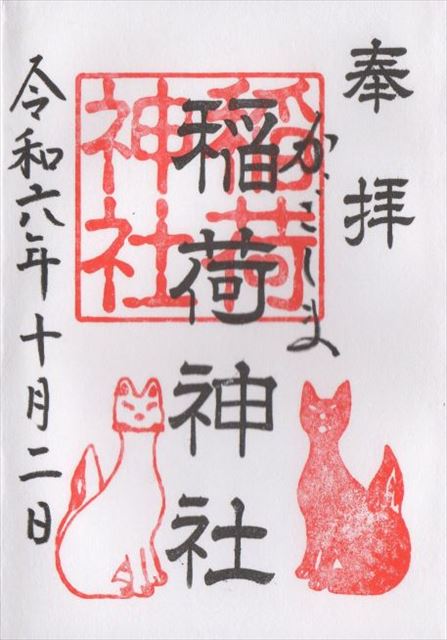 奉拝
かごしま
稲荷神社
稲荷
神社
令和六年十月二日